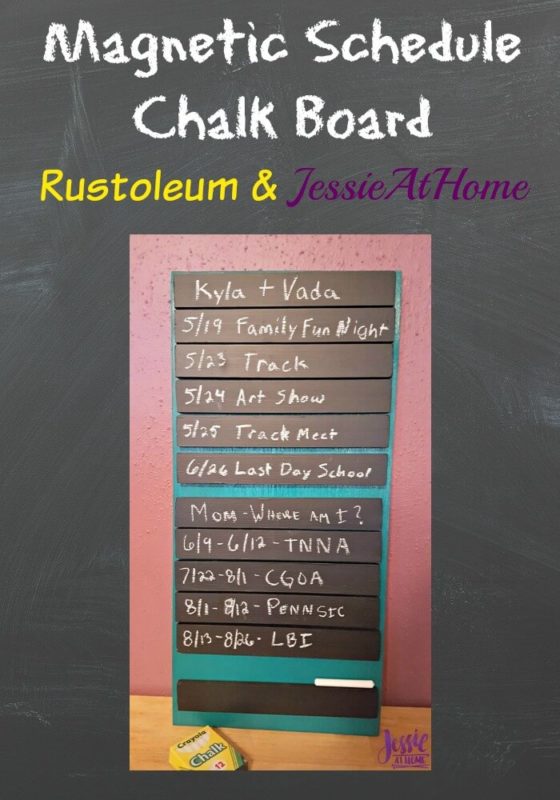 Magnetic Schedule
Chalk Board
Rustoleum & JessieAtHome
Kyla + Vada
5/19 Family Fun Night
5/23 Track
5/24 Art Show
5/25 Track Meet
6/26 Last Day School
Mom-Where am I?
6/9-6/12-TNNA
7/22-8/1-CGOA
8/1-8/12-Pennsic
8/13-8/26-LBI
Crayola
Chalk
12
Jessie
AT HOME